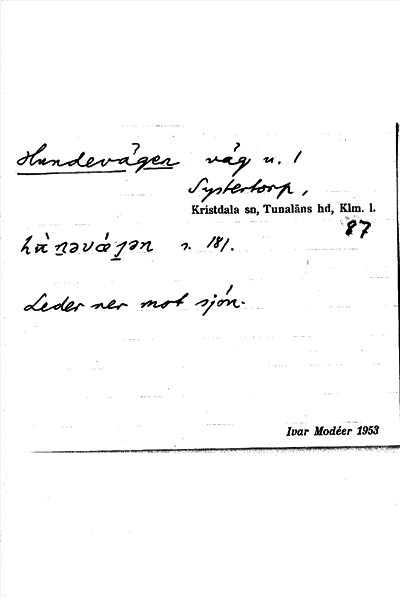 Hundevägen väg u. 1
Systertorp,
Kristdala sn, Tunaläns hd, Klm. l.
87
s. 181.
Leder ner mot sjön.
Ivar Modéer 1953